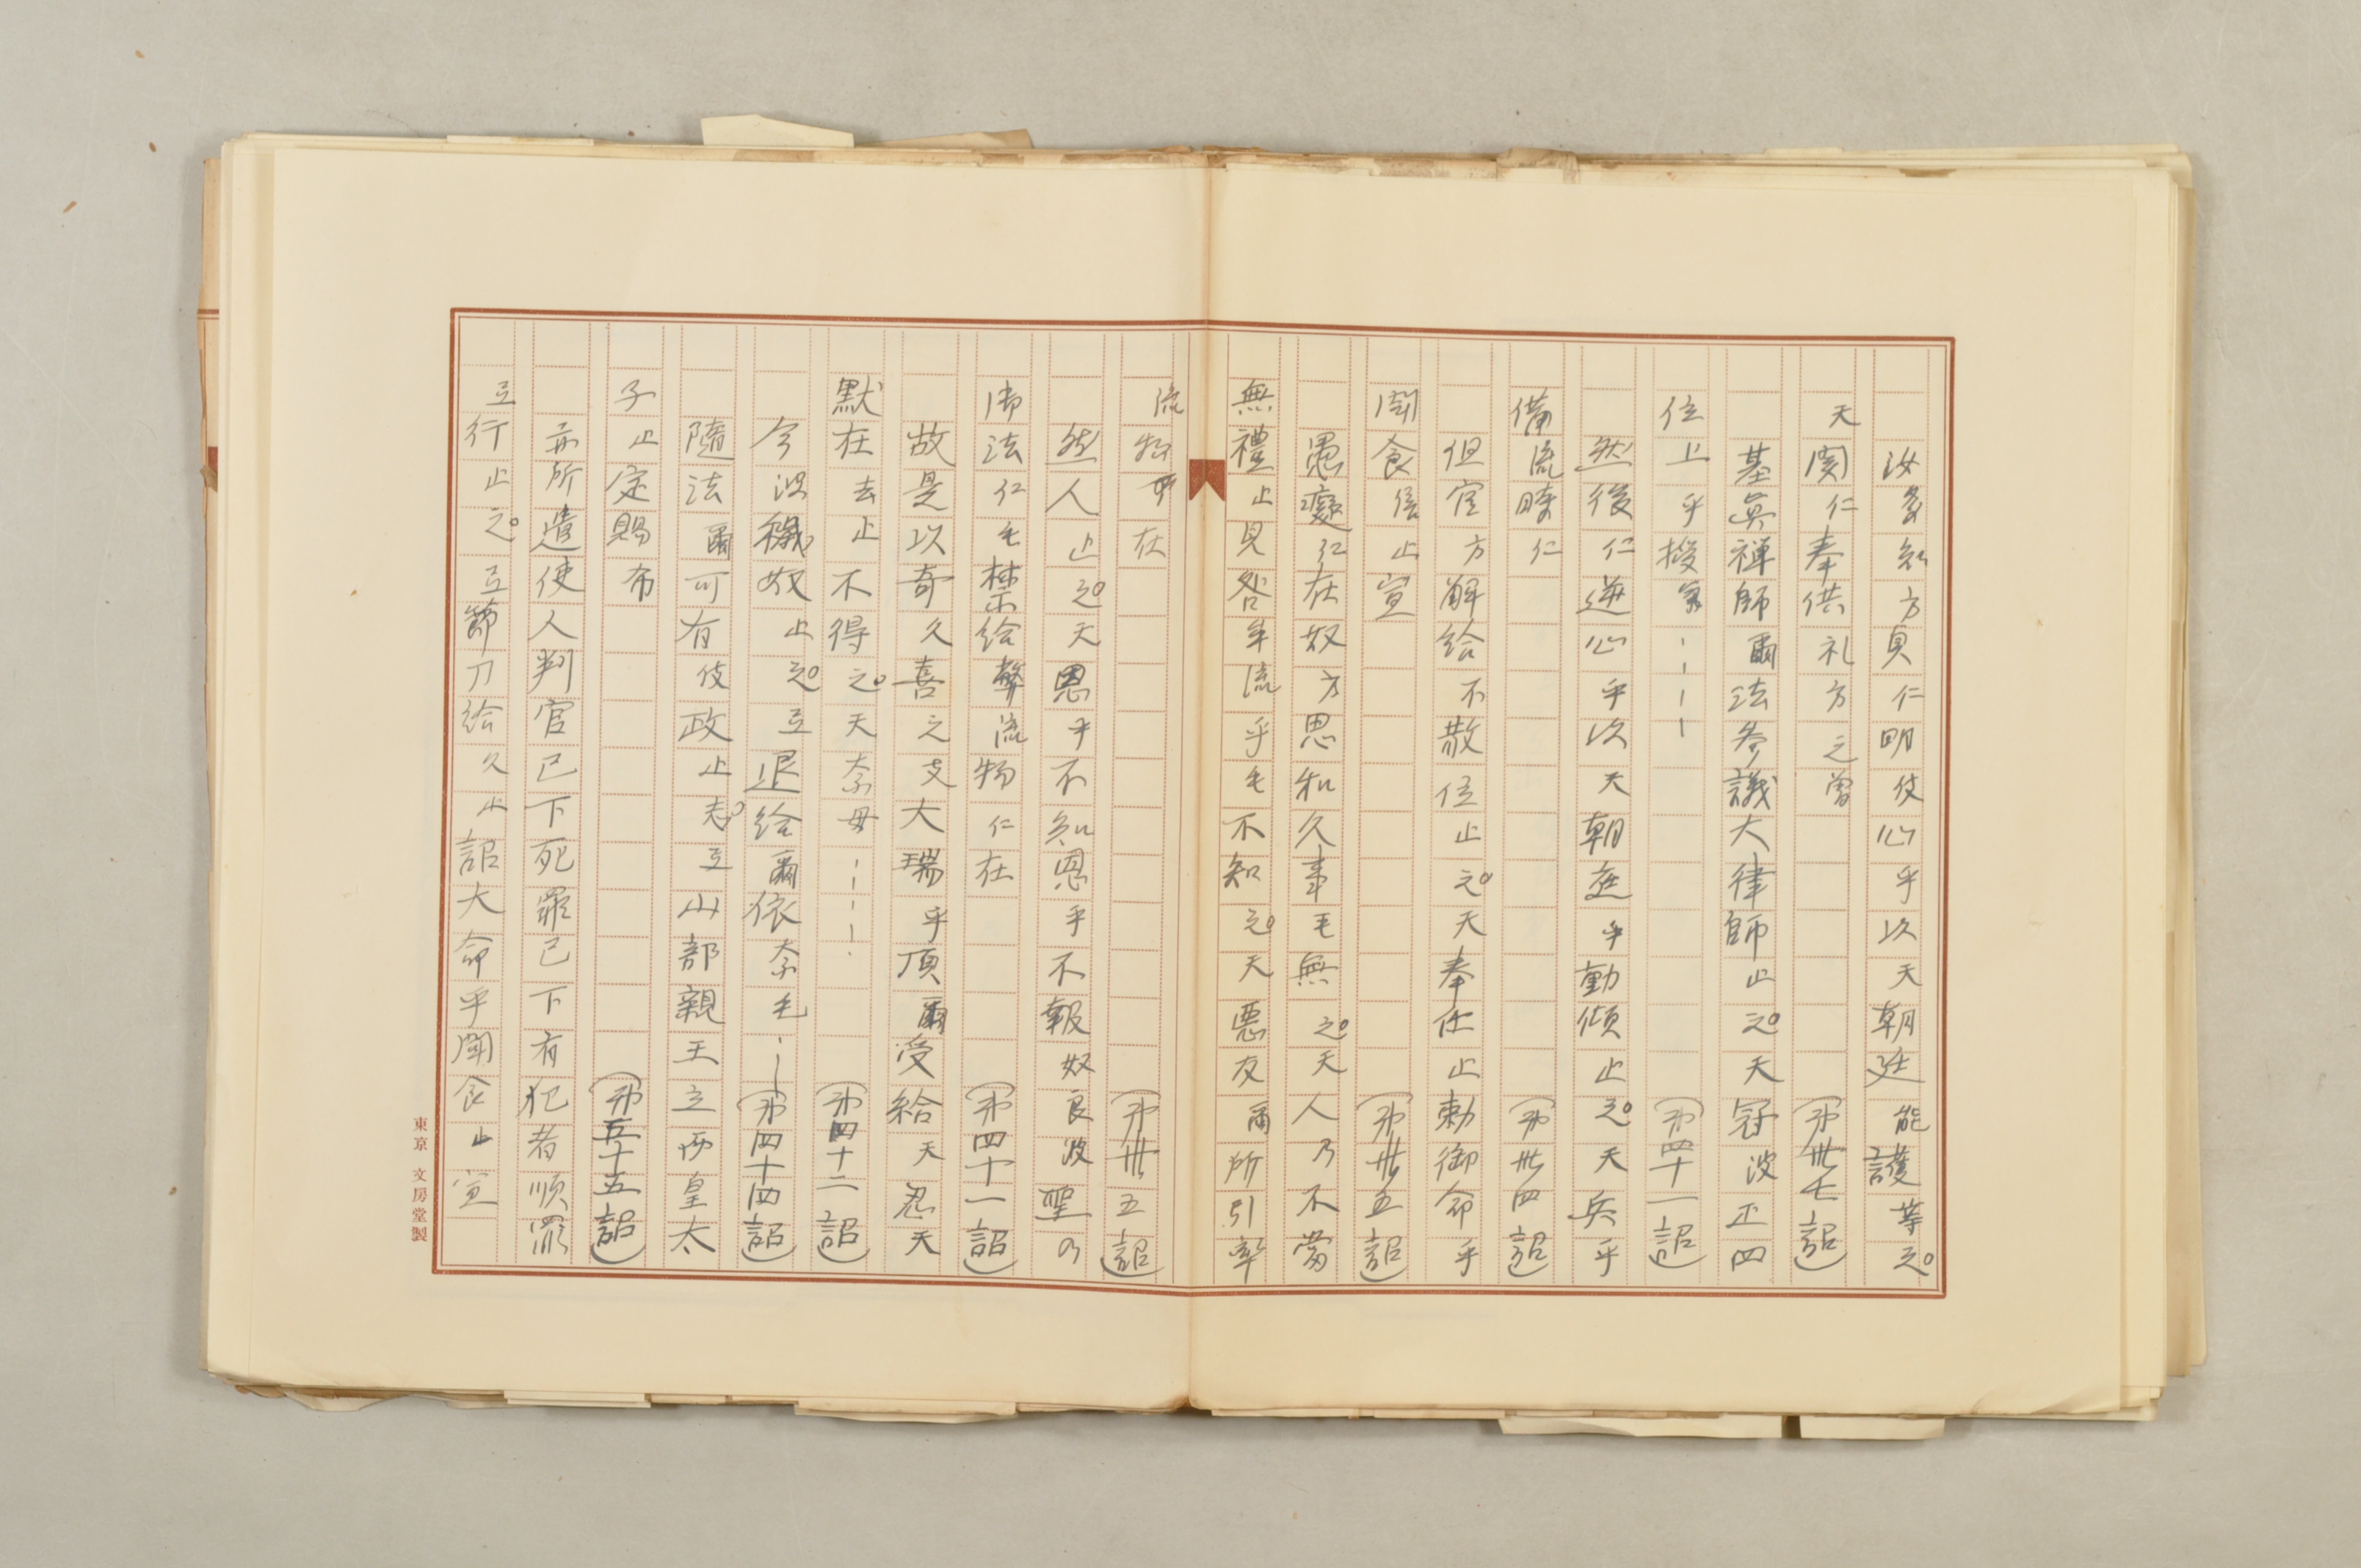 汝多知方貝仁明伎心乎以天朝廷能護等之
天関仁奉供礼方之曽 (第卅七詔)
基真禅師爾法参議大律師止之天冠波正四
位上乎授家 (第四十一詔)
然後仁逆心乎以天朝庭乎動傾止之天兵乎
備流時仁 (第卅四詔)
但官方解給不散位止之天奉仕止勅御命乎
聞食倍止宣 (第卅五詔)
愚癡仁在奴方思和久事毛無之天人乃不当
無礼止見咎牟流乎毛不知之天悪友爾所引率
流物仁在 (第卅五詔)
然人止之天恩乎不知恩乎不報奴良波聖乃
御法仁毛禁給弊流物仁在 (第四十一詔)
故是以奇久喜之支大瑞乎頂爾受給天忍天
黙在去止不得之天奈母 (第四十二詔)
今波穢奴止之立退給爾依奈毛 (第四十四詔)
随法爾可有伎政止志立山部親王立而皇太
子止定賜布 (第五十五詔)
亦所遣使人判官已下死罪已下有犯者順罪
立行止之立節刀給久止詔大命乎聞食止宣
東京 文房堂製